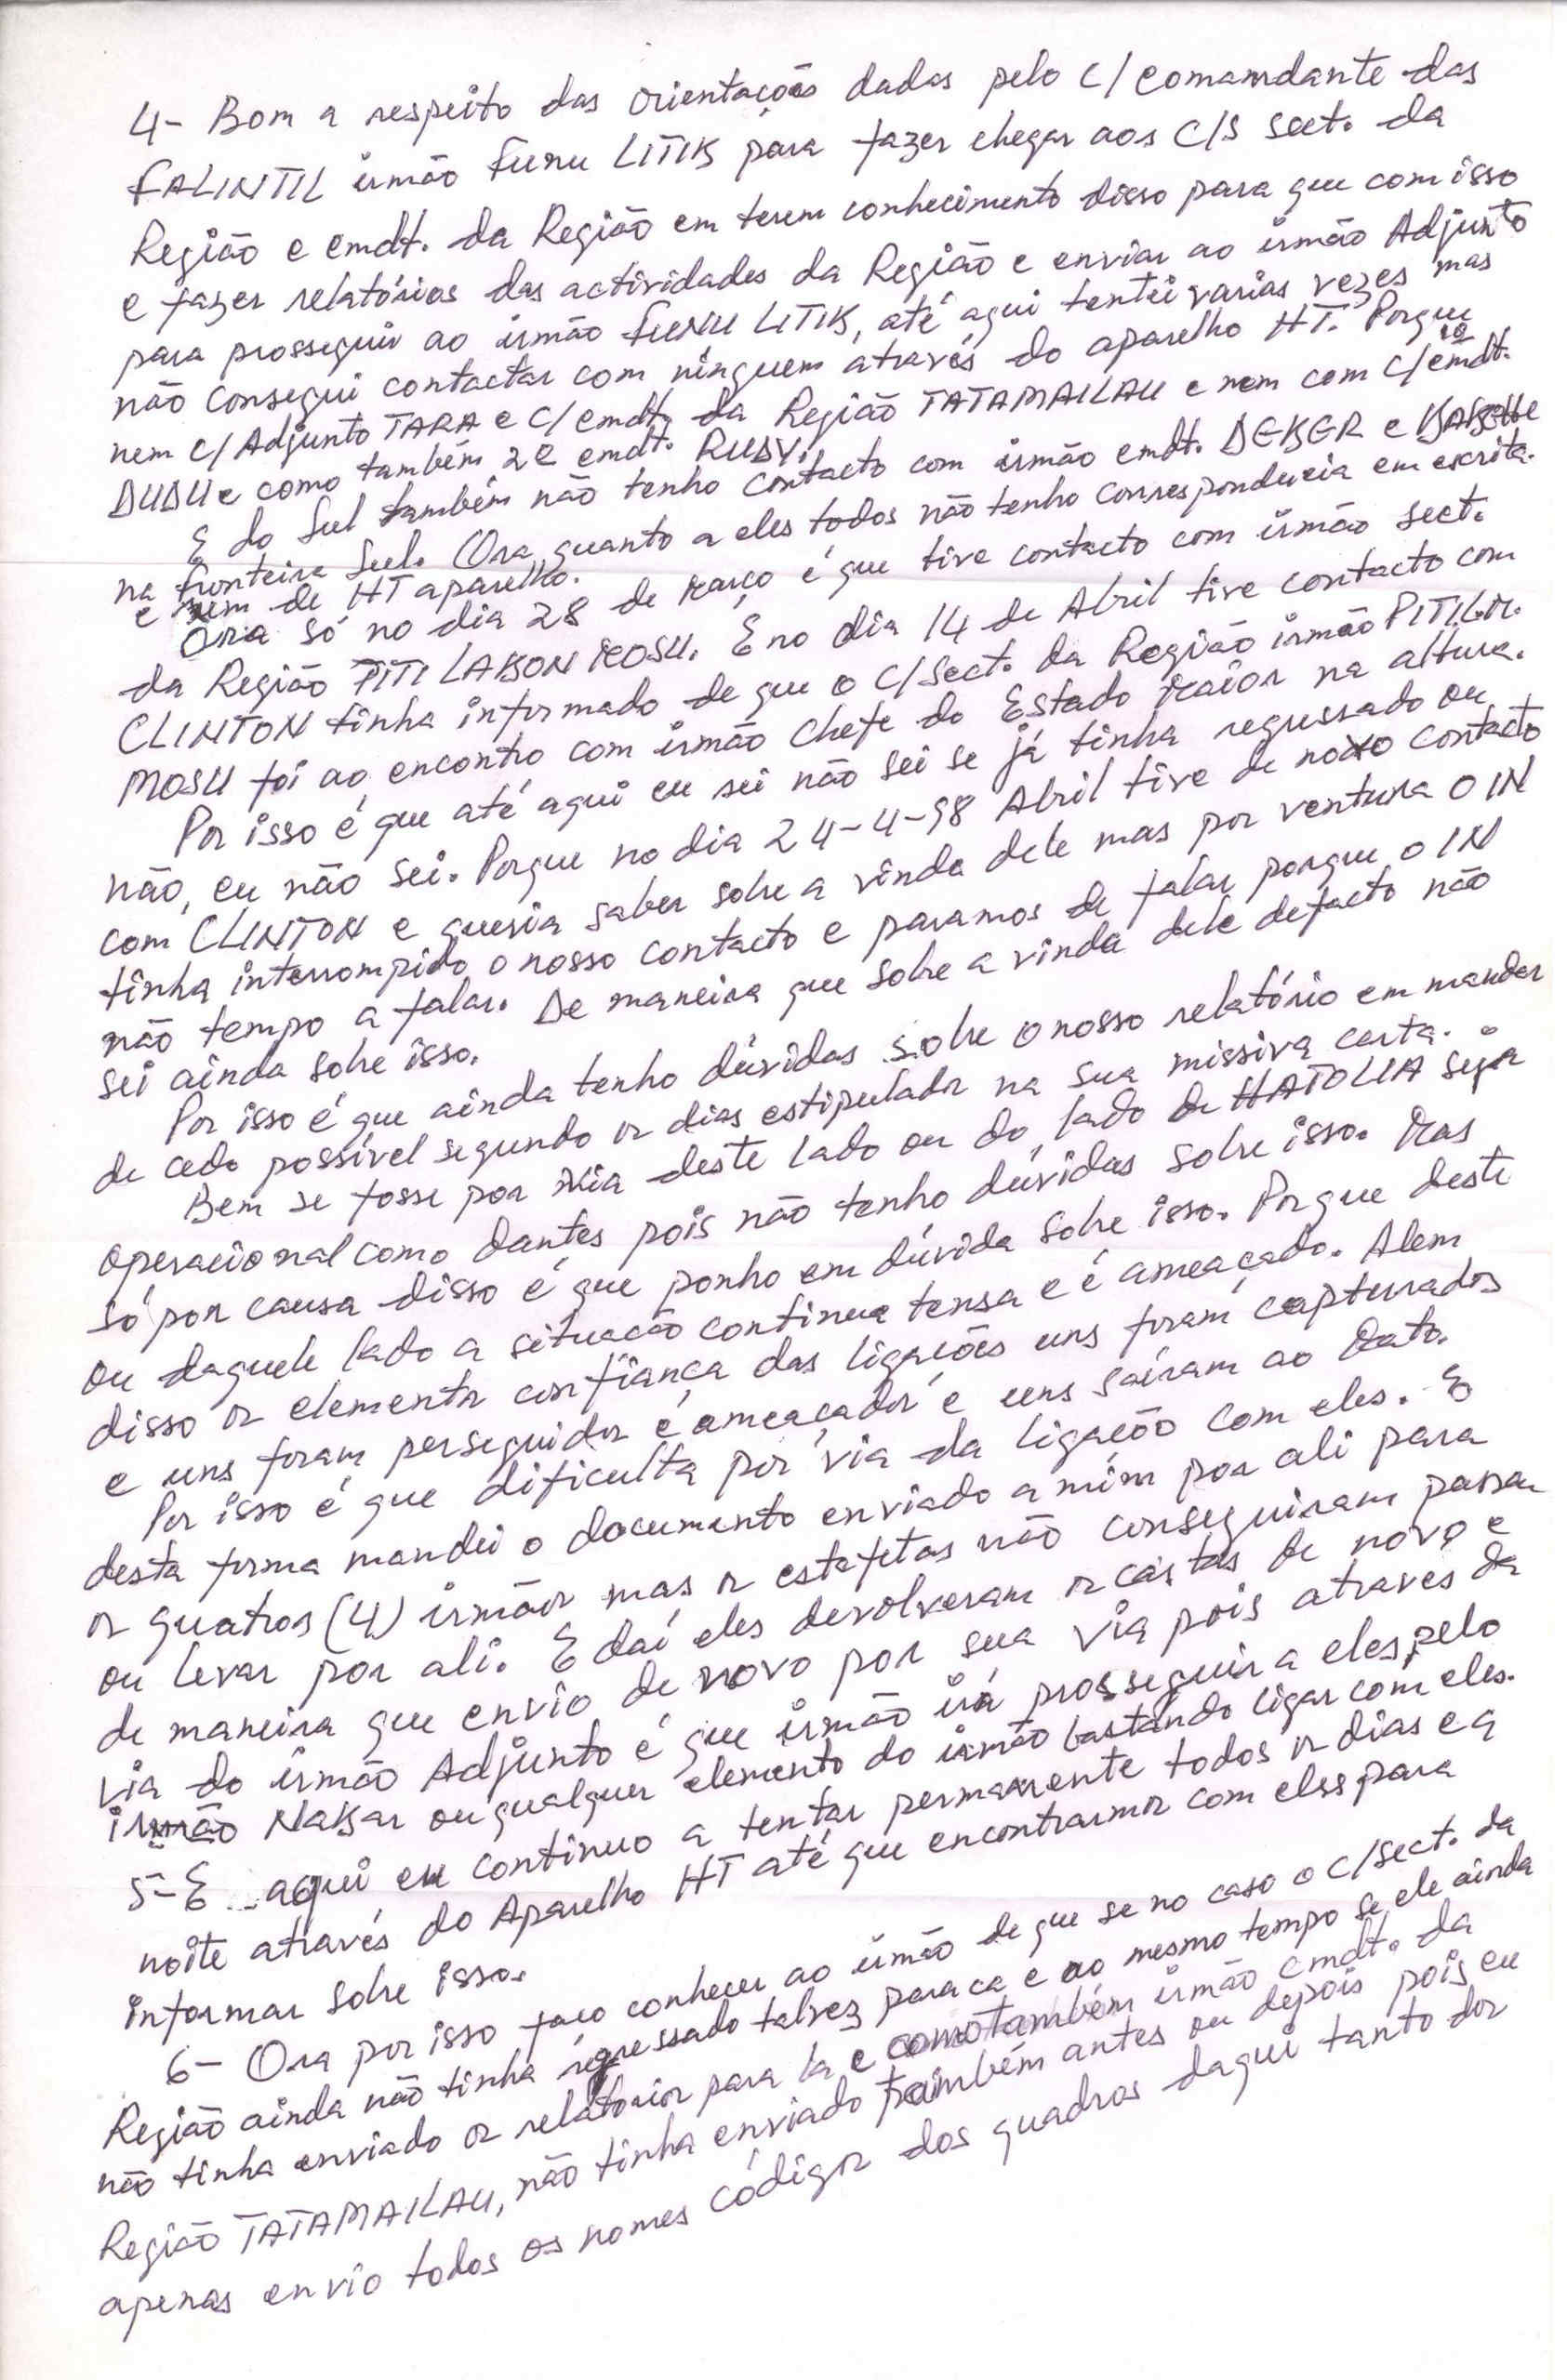 4- Bom a respeito das orientações dadas pelo C/ comamdante das
FALINTIL irmão FUNU LITIK para fazer chegar aos C/S Sect. da
Região e cmdt. da Região em terem conhecimento disso para que com isso
e fazer relatórios das actividades da Região e enviar ao irmão Adjunto
para prosseguir ao irmão FUNU LITIK, até aqui tentei varias vezes mas
não consegui contactar com ninguem através do aparelho HT. Porque
nem C/ Adjunto TARA e C/ cmdt. da Região TATAMAILAU e nem com C/ cmdt.
DUDU e como também 2º cmdt. RUDY.
E do Sul também não tenho contacto com irmão cmdt. DEKER e
na fronteira Sul. Ora quanto a eles todos não tenho correspondencia em escrita
e nem de HT aparelho.
Ora só no dia 28 de Março é que tive contacto com irmão Sect.
da Região PITI LAKON MOSU. E no dia 14 de Abril tive contacto com
CLINTON tinha informado de que o C/Sect. da Região irmão PITI L.
MOSU foi ao encontro com irmão Chefe do Estado Maior na altura.
Por isso é que até aqui eu sei não sei se já tinha regressado ou
não, eu não sei. Porque no dia 24-4-98 Abril tive de novo contacto
com CLINTON e queria saber sobre a vinda dele mas por ventura o IN
tinha interrompido o nosso contacto e paramos de falar porque o IN
não tempo a falar. De maneira que sobre a vinda dele defacto não
sei ainda sobre isso.
Por isso é que ainda tenho dúvidas sobre o nosso relatório em mandar
de cedo possível segundo os dias estipulados na sua missiva carta.
Bem se fosse por via deste lado ou do lado de HATOLIA seja
operacional como dantes pois não tenho dúvidas sobre isso. Mas
só por causa disso é que ponho em dúvida sobre isso. Porque deste
ou daquele lado a situação continua tensa e é ameaçado. Alem
disso os elementos confiança das ligações uns foram capturados
e uns foram perseguidos é ameaçados e uns saíram ao Mato.
Por isso é que dificulta por via da ligação com eles. E
desta forma mandei o documento enviado a mim por ali para
os quatros (4) irmãos mas os estafetas não conseguiram passar
ou levar por ali. E daí eles devolveram as cartas de novo e
de maneira que envio de novo por sua via pois atraves da
via do irmão Adjunto é que irmão irá prosseguir a eles pelo
irmão NaKar ou qualquer elemento do irmão bastando ligar com eles.
5- E aqui eu continuo a tentar permanente todos os dias e a
noite através do Aparelho HT até que encontrarmos com eles para
informar sobre isso.
6- Ora por isso faço conhecer ao irmão de que se no caso o C/Sect. da
Região ainda não tinha regressado talvez para ca e ao mesmo tempo se ele ainda
não tinha enviado os relatorios para la e como também irmão cmdt. da
Região TATAMAILAU, não tinha enviado também antes ou depois pois eu
apenas envio todos os nomes códigos dos quadros daqui tanto dos